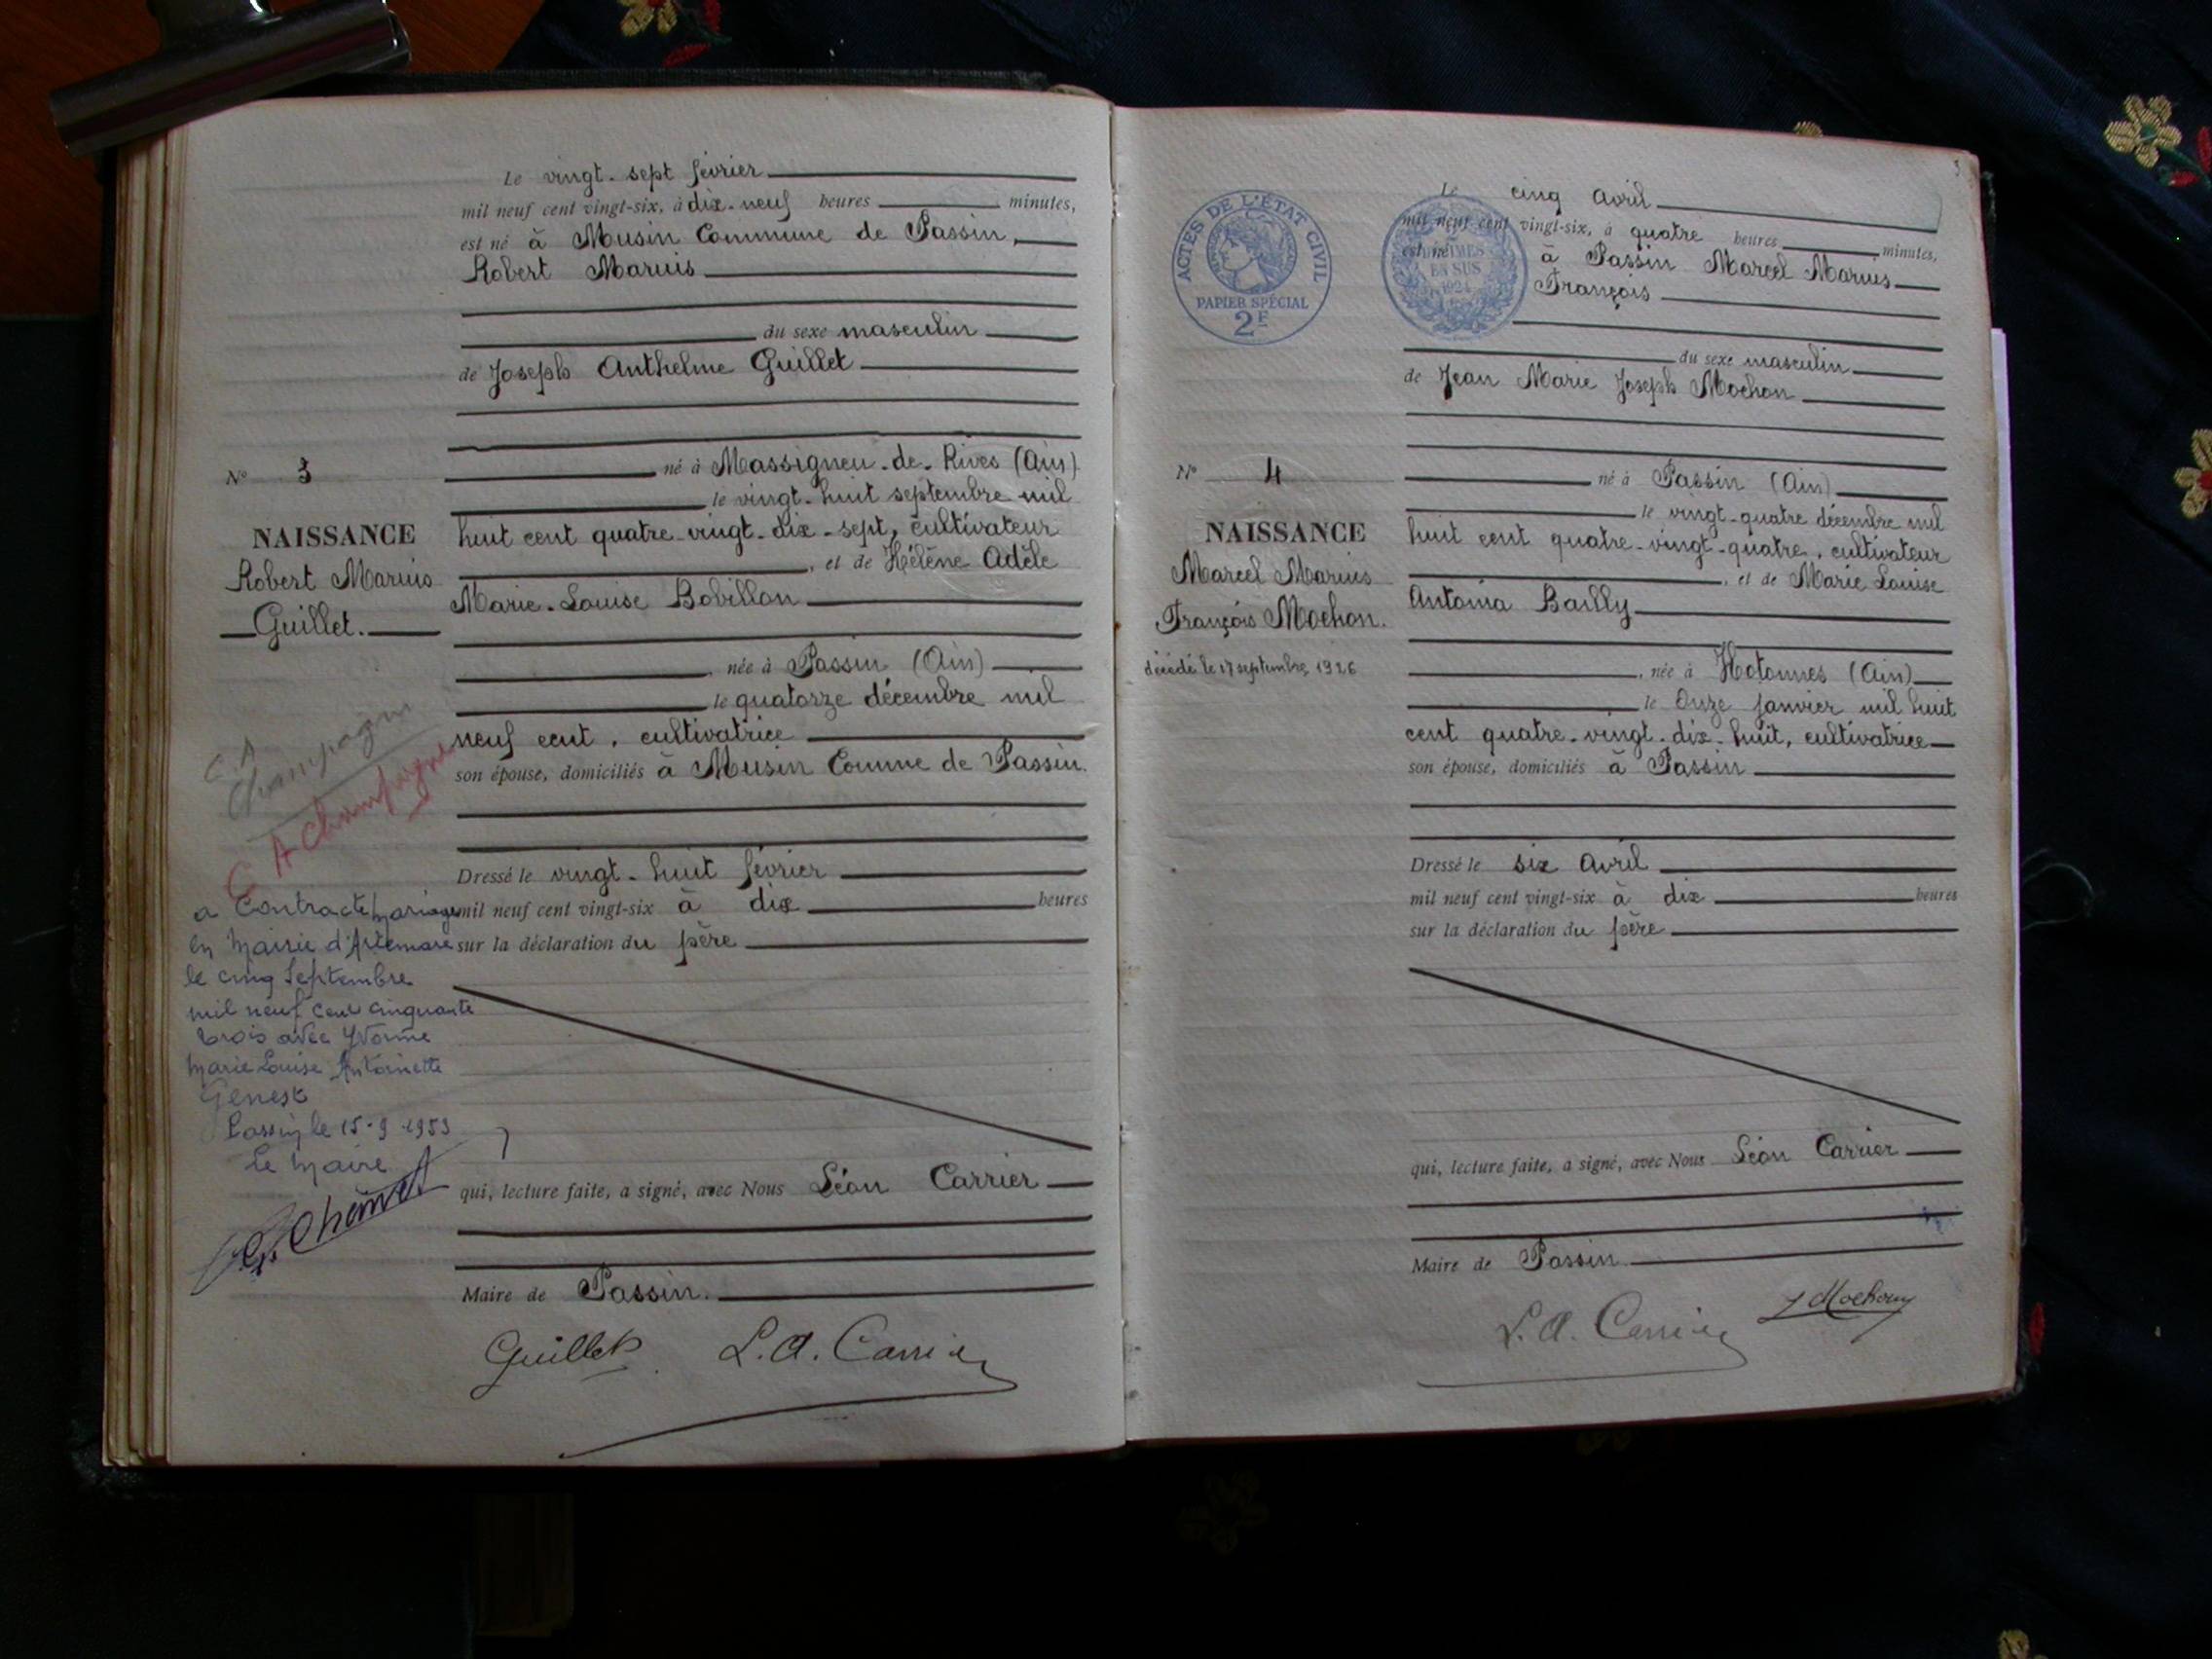 Le vingt-sept février
mil neuf cent vingt-six, à dix-neuf heures minutes,
est né à Musin Commune de Passin,
Robert Marius
du sexe masculin
de Joseph Anthelme Guillet
né à Massigneu-de-Rives (Ain)
le vingt-huit septembre mil
huit cent quatre-vingt-dix-sept, cultivateur
, et de Hélène Adèle
Marie-Louise Bobillon
, née à Passin (Ain)
le quatorze décembre mil
neuf cent, cultivatrice
son épouse, domiciliés à Musin Comune de Passin.
Dressé le vingt-huit février
mil neuf cent vingt-six à dix heures
sur la déclaration du père
qui, lecture faite, a signé, avec Nous Léon Carrier
Maire de Passin.
Guillet L.A. Carrier
N° 3
NAISSANCE
Robert Marius
Guillet.
C.A
Champagne
C A Champagne
a Contracté mariage
en Mairie d'Artemare
le cinq Septembre
mil neuf cent cinquante
trois avec Yvonne
Marie Louise Antoinette
Genest
Passin, le 15-9-1953
Le Maire
3
ACTES DE L'ÉTAT CIVIL
PAPIER SPÉCIAL
2F
EN SUS
1924
Le cinq avril
mil neuf cent vingt-six, à quatre heures minutes,
est né à Passin Marcel Marius
François
du sexe masculin
de Jean Marie Joseph Mochon
né à Passin (Ain)
le vingt-quatre décembre mil
huit cent quatre-vingt-quatre, cultivateur
, et de Marie Louise
Antonia Bailly
, née à Hotonnes (Ain)
le onze janvier mil huit
cent quatre-vingt-dix-huit, cultivatrice
son épouse, domiciliés à Passin
Dressé le six avril
mil neuf cent vingt-six à dix heures
sur la déclaration du père
qui, lecture faite, a signé, avec Nous Léon Carrier
Maire de Passin
L.A. Carrier J Mochon
N° 4
NAISSANCE
Marcel Marius
François Mochon.
décédé le 17 septembre 1926